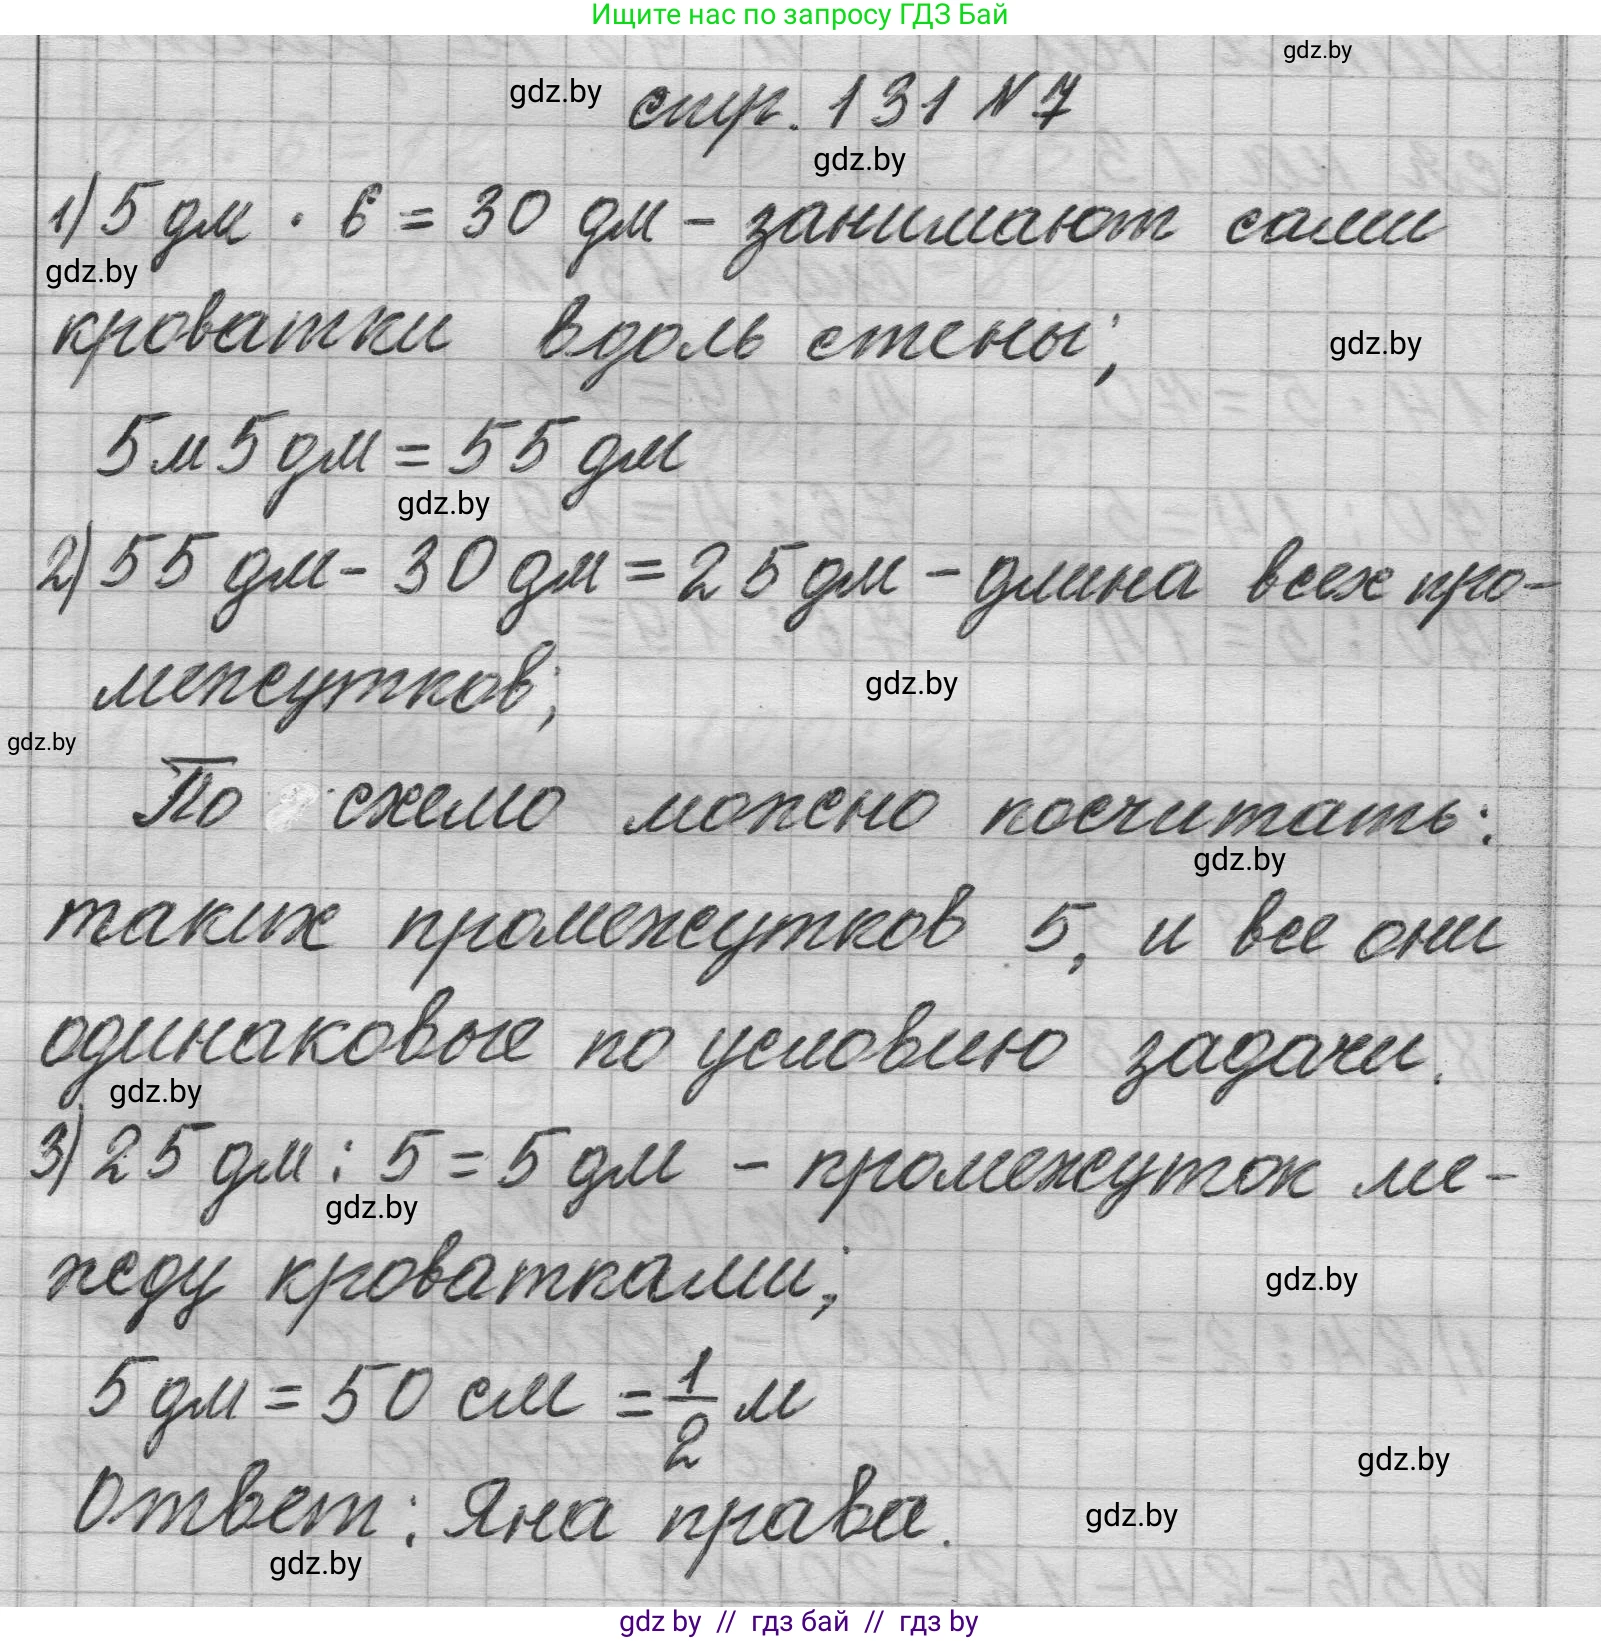 Ищите нас по запросу ГДЗ Бай
gdz.by
gdz.by стр. 131 №7
gdz.by
1) 5 дм · 6 = 30 дм - занимают сами
gdz.by
кроватки вдоль стены;
gdz.by
5м 5дм = 55 дм
gdz.by
2) 55 дм - 30 дм = 25 дм - длина всех про-
межутков;
gdz.by
gdz.by
По схемо можно посчитать:
gdz.by
таких промежутков 5, и все они
одинаковые по условию задачи.
gdz.by
3) 25 дм : 5 = 5 дм - промежуток ме-
gdz.by
жеду кроватками;
gdz.by
5 дм = 50 см = 1/2 м
gdz.by
Ответ: Яна права.
gdz.by
gdz.by
gdz by // гдз бай // гдз by